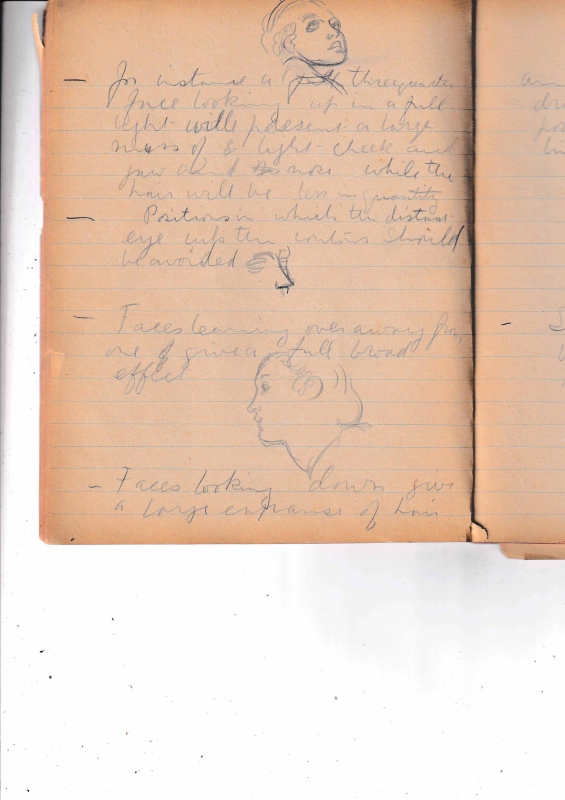 — for instance a full threequarter
face looking up in a full
light will present a large
mass of light - cheek and
jaw and nose while the
hair will be less in quantity
— Positions in which the distant
eye cuts the contour should
be avoided
— Faces leaning over away from
one give a full broad
effect
— Faces looking down give
a large expanse of hair
an
dr
pos
— S